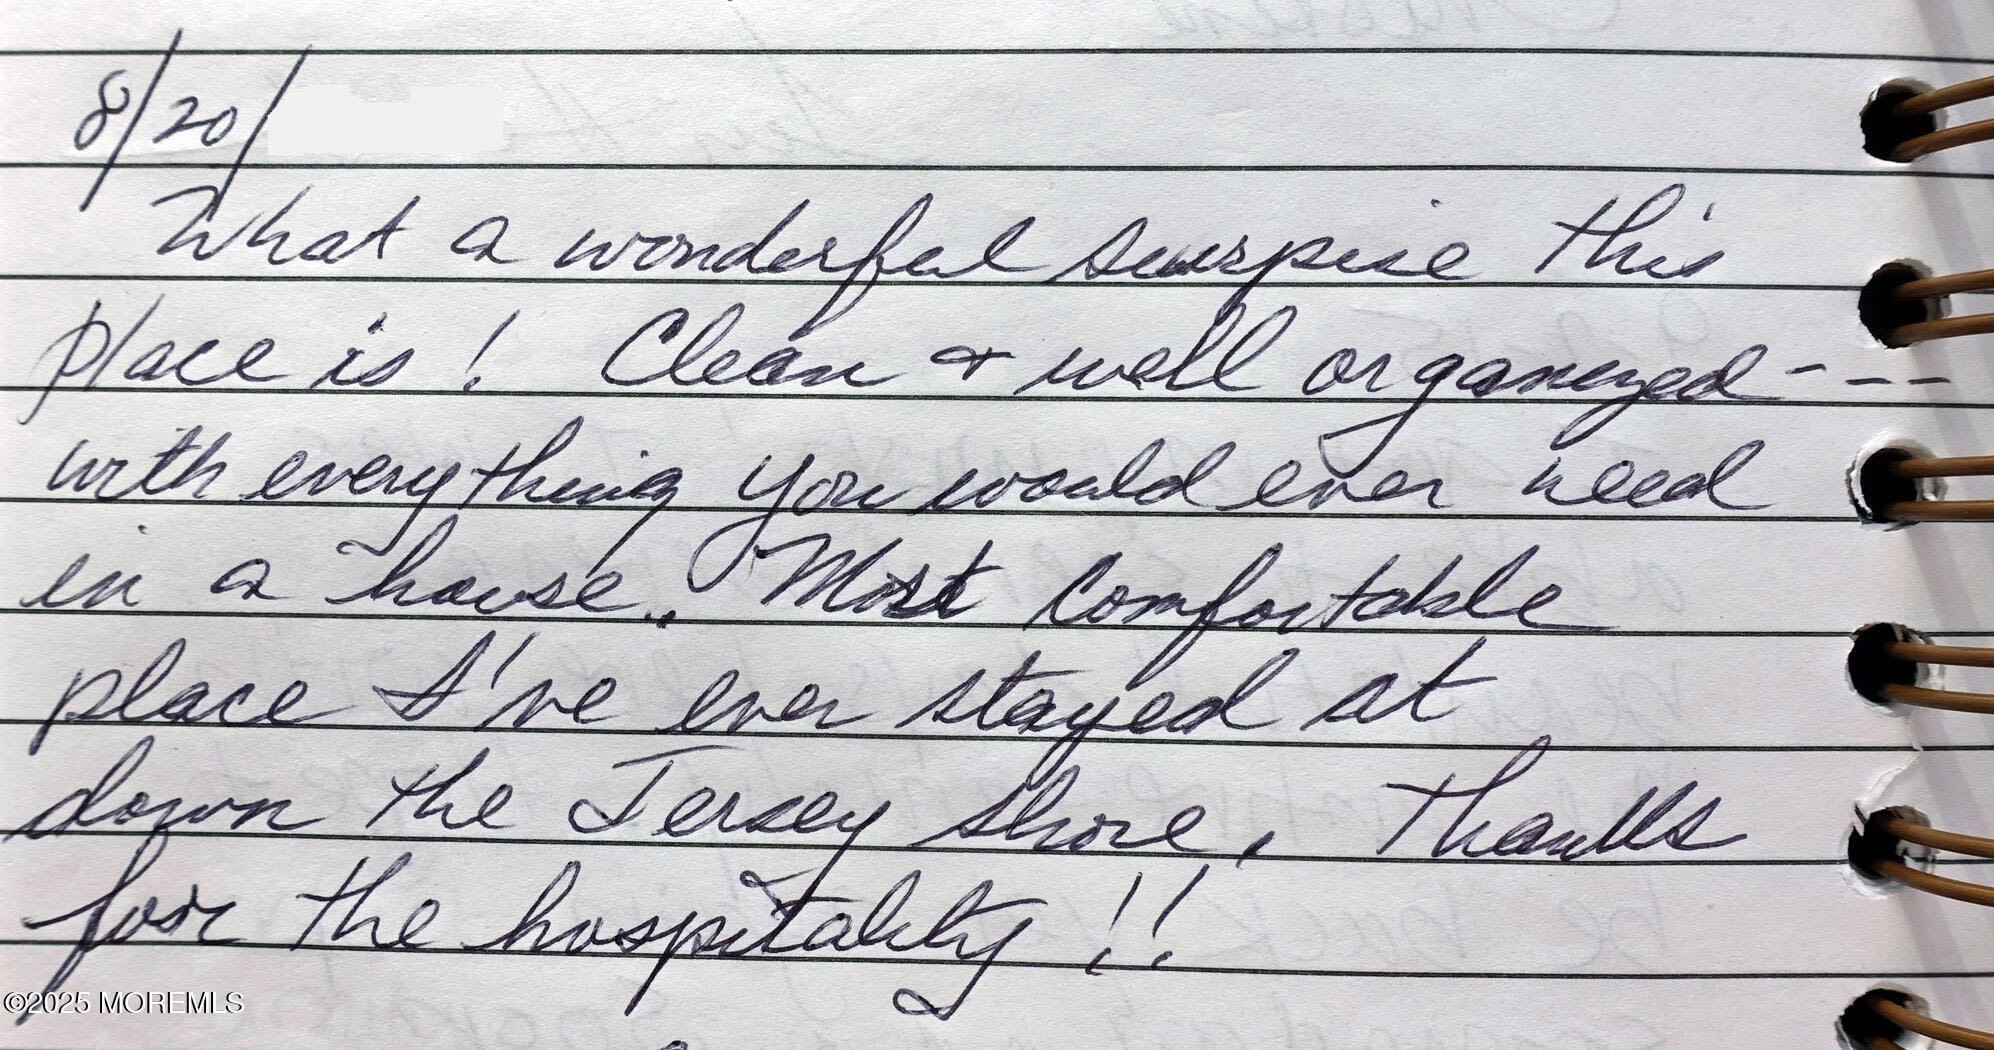 8/20/
What a wonderful surprise this
place is! Clean + well organized - - -
with everything you would ever need
in a house. Most comfortable
place I've ever stayed at
down the Jersey shore. Thanks
for the hospitality!!
©2025 MOREMLS